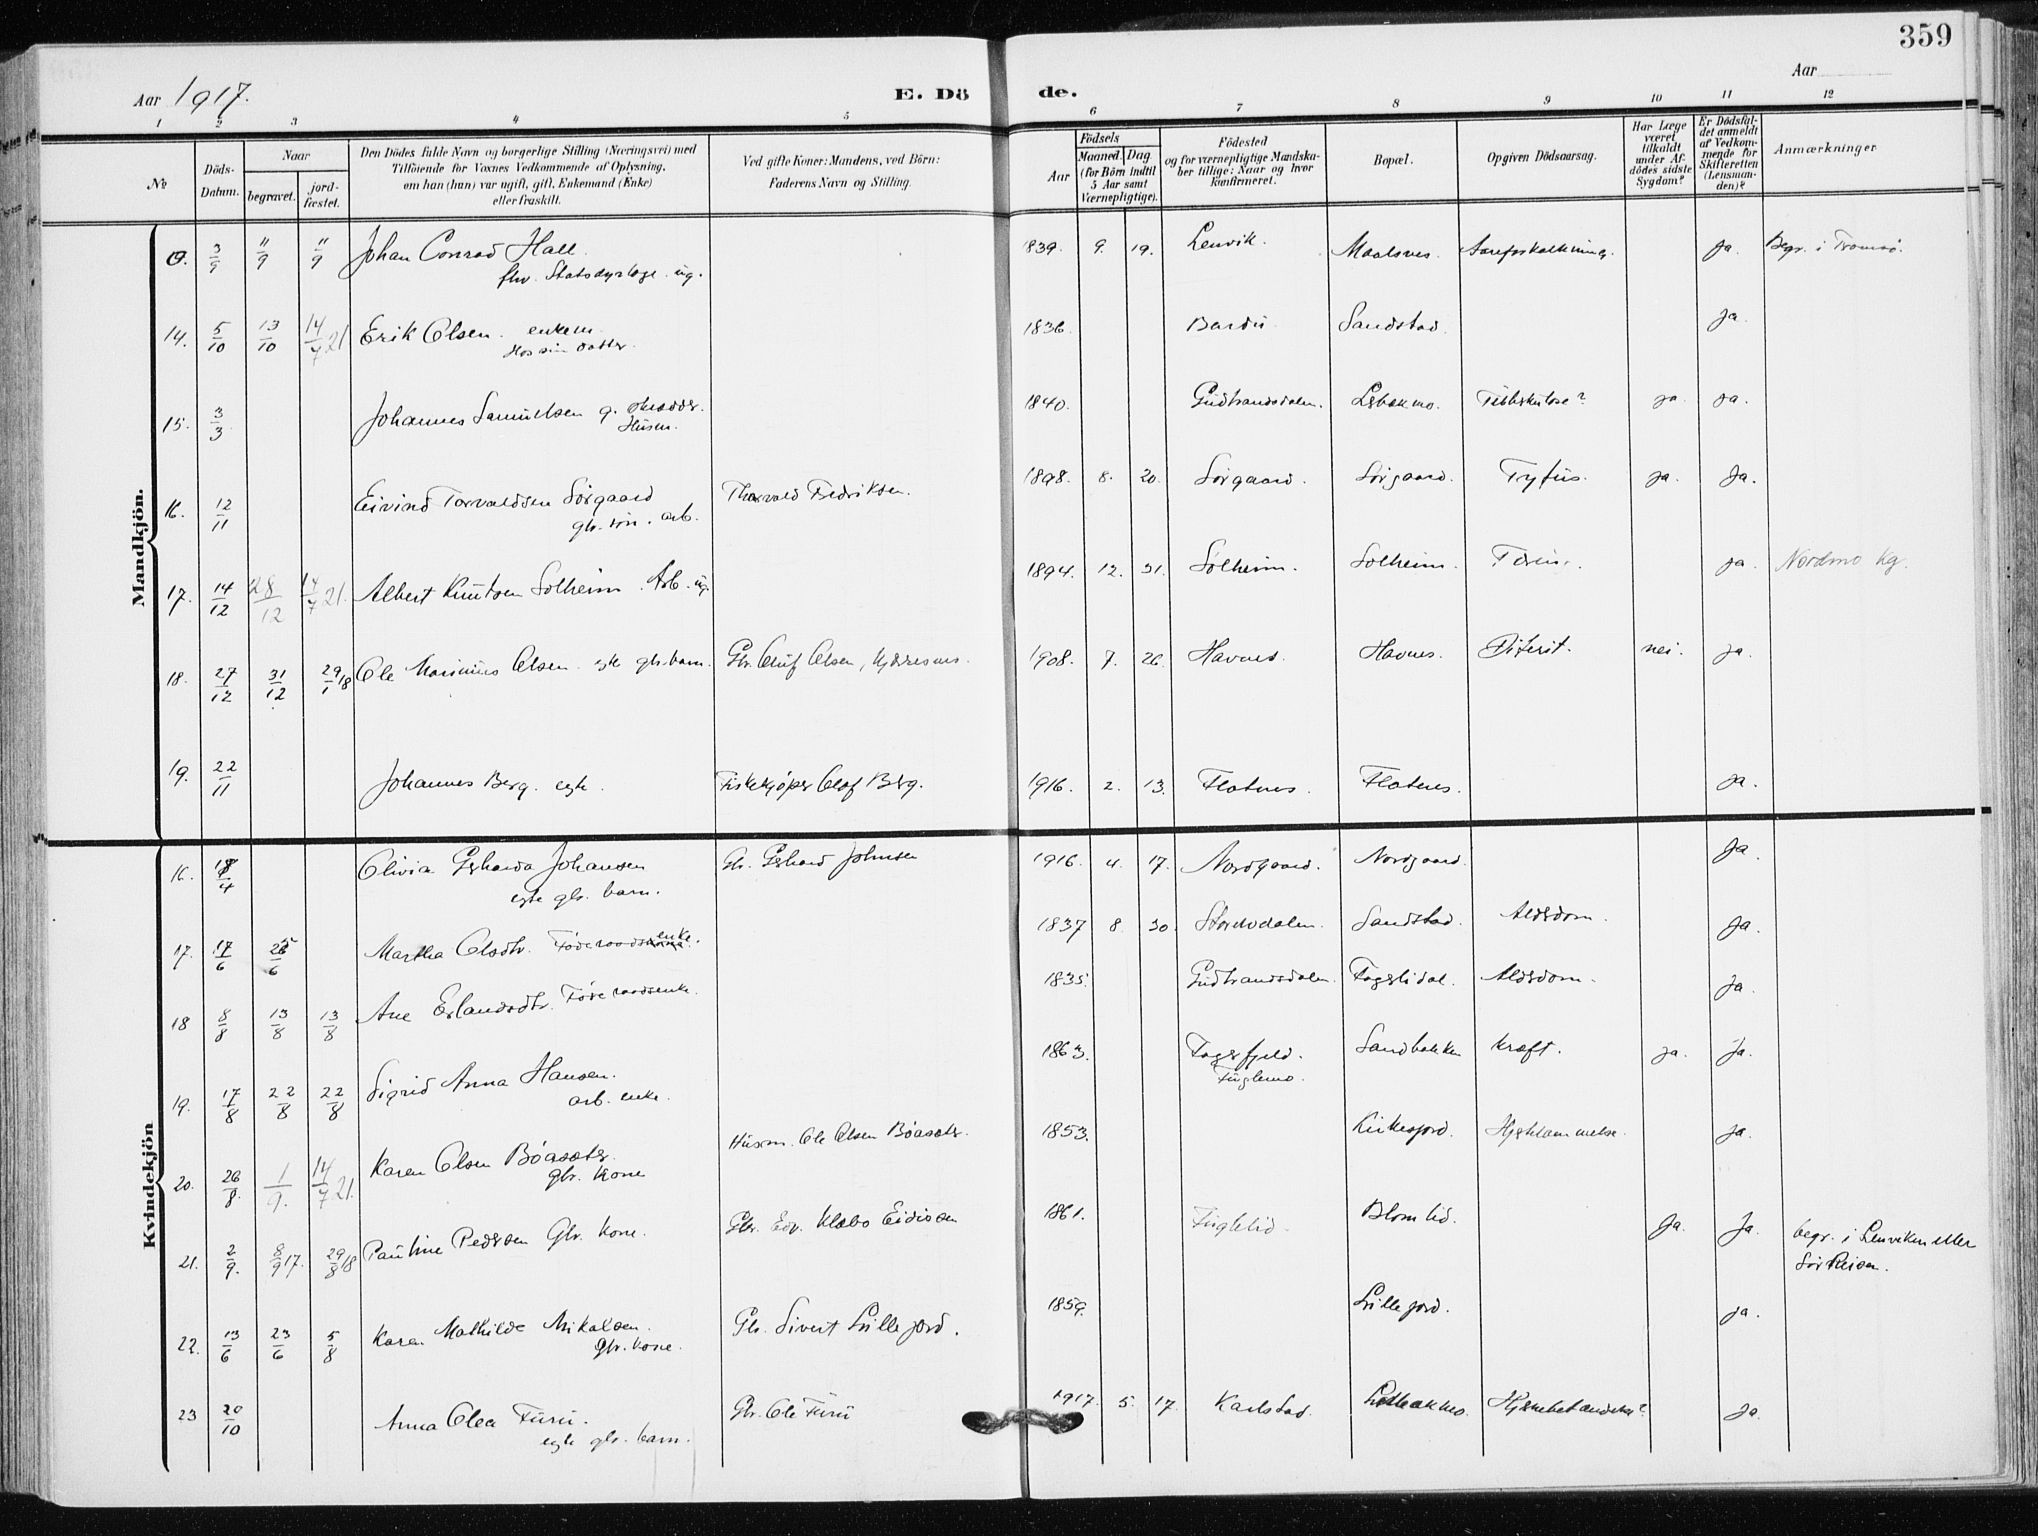 359
Aar 1917.
E. Dö de.
Aar
1 2 3 4 5 6 7 8 9 10 11 12
№
Döds-Datum.
Naar
begravet.
jord-fæstet.
Den Dödes fulde Navn og borgerlige Stilling (Næringsvei) med
Tilföiende for Voxnes Vedkommende af Oplysning,
om han (hun) var ugift, gift, Enkemand (Enke)
eller fraskilt.
Ved gifte Koner: Mandens, ved Börn:
Faderens Navn og Stilling.
Födsels
Aar
Maaned. Dag
(for Börn indtil
5 Aar samt
Værnepligtige).
Födested
og for værnepligtige Mandska-
ber tillige: Naar og hvor
konfirmeret.
Bopæl.
Opgiven Dödsaarsag.
Har Læge
været
tilkaldt
under Af-
dödes sidste
Sygdom?
Er Dödsfal-
det anmeldt
af Vedkom-
mende for
Skifteretten
(Lensman-
den)?
Anmærkninger
Mandkjön.
3/9 11/9 11/9 Johan Conrad Hall 1839. 9. 19. Lenvik. Maalsnes. Aareforkalkning. Ja. Begr. i Tromsø.
fhv. Statsdyrlæge. ug.
14. 5/10 13/10 14/7 21 Erik Olsen. enkem. 1836. Bardu Sandstad. Ja.
Hos sin datter.
15. 3/3 Johannes Samuelsen g. 1840. Gudbrandsdalen. Tuberkulose? ja. Ja.
16. 12/11 Eivind Torvaldsen Sörgaard Thorvald Fredriksen. 1898. 8. 20. Sörgaard. Sörgaard. Tyfus. ja. Ja.
gbr. sön. arb.
17. 14/12 28/12 14/7 21. Albert Knutsen Solheim. Arb. ug. 1894. 12. 31. Solheim. Solheim. Ja. Nordmo Kg.
18. 27/12 31/12 29/1 18 Ole Marinius Olsen egte gbr. barn. Gbr. Oluf Olsen, Kjerresnes. 1908. 7. 26. Havnes. Havnes. Difterit. nei. Ja.
19. 22/11 Johannes Berg. egte. Fiskekjøper Olaf Berg. 1916. 2. 13. Flatnes. Flatnes. Ja.
Kvindekjön
16. /4 Olivia Gerharda Johansen Gbr. Gerhard Johnsen 1916. 4. 17. Nordgaard. Nordgaard. Ja.
egte gbr. barn.
17. 17/6 /6 Martha Olsdtr. Føderaadsenke. 1837 8. 30. Sandstad. Alderdom. Ja.
18 8/8 13/8 13/8 Ane Erlandsdtr. Føderaadsenke. 1835. Gudbrandsdalen Fagerlidal. Alderdom. Ja.
19. 17/8 22/8 22/8 Sigrid Anna Hansen. 1863. Fagerfjeld. Sandbakken Kræft. ja. Ja.
arb. enke. Fuglemo.
20. 26/8. 1/9. 14/7 21. Karen Olsen Bøasæter. Husm. Ole Olsen Bøasæter. 1853. Kirkesjord. Hjertelammelse. Ja.
gbr. Kone
21. 2/9. 8/9 17. 29/8 18 Pauline Pedersen Gbr. kone. Gbr. Edv. Klæbo Eidissen 1861. Fuglelid. Blomlid. Ja. Ja. begr. i Lenviken eller
Sör Reisen.
22. 13/6 23/6 5/8 Karen Mathilde Mikalsen. Gbr. Sivert Lillejord. 1859. Lillejord. Ja.
gbr. kone.
23 20/10 Anna Olea Furu. Gbr. Ole Furu 1917. 5. 17. Karlstad. Ja.
egte gbr. barn.